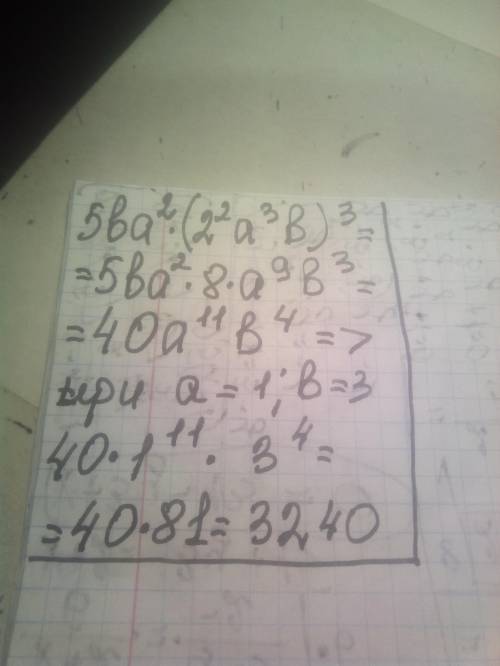 5ba²·(2²a³b)³=
=5ba²·8·a⁹b³=
=40a¹¹b⁴=>
при a=1; b=3
40·1¹¹·3⁴=
=40·81=3240